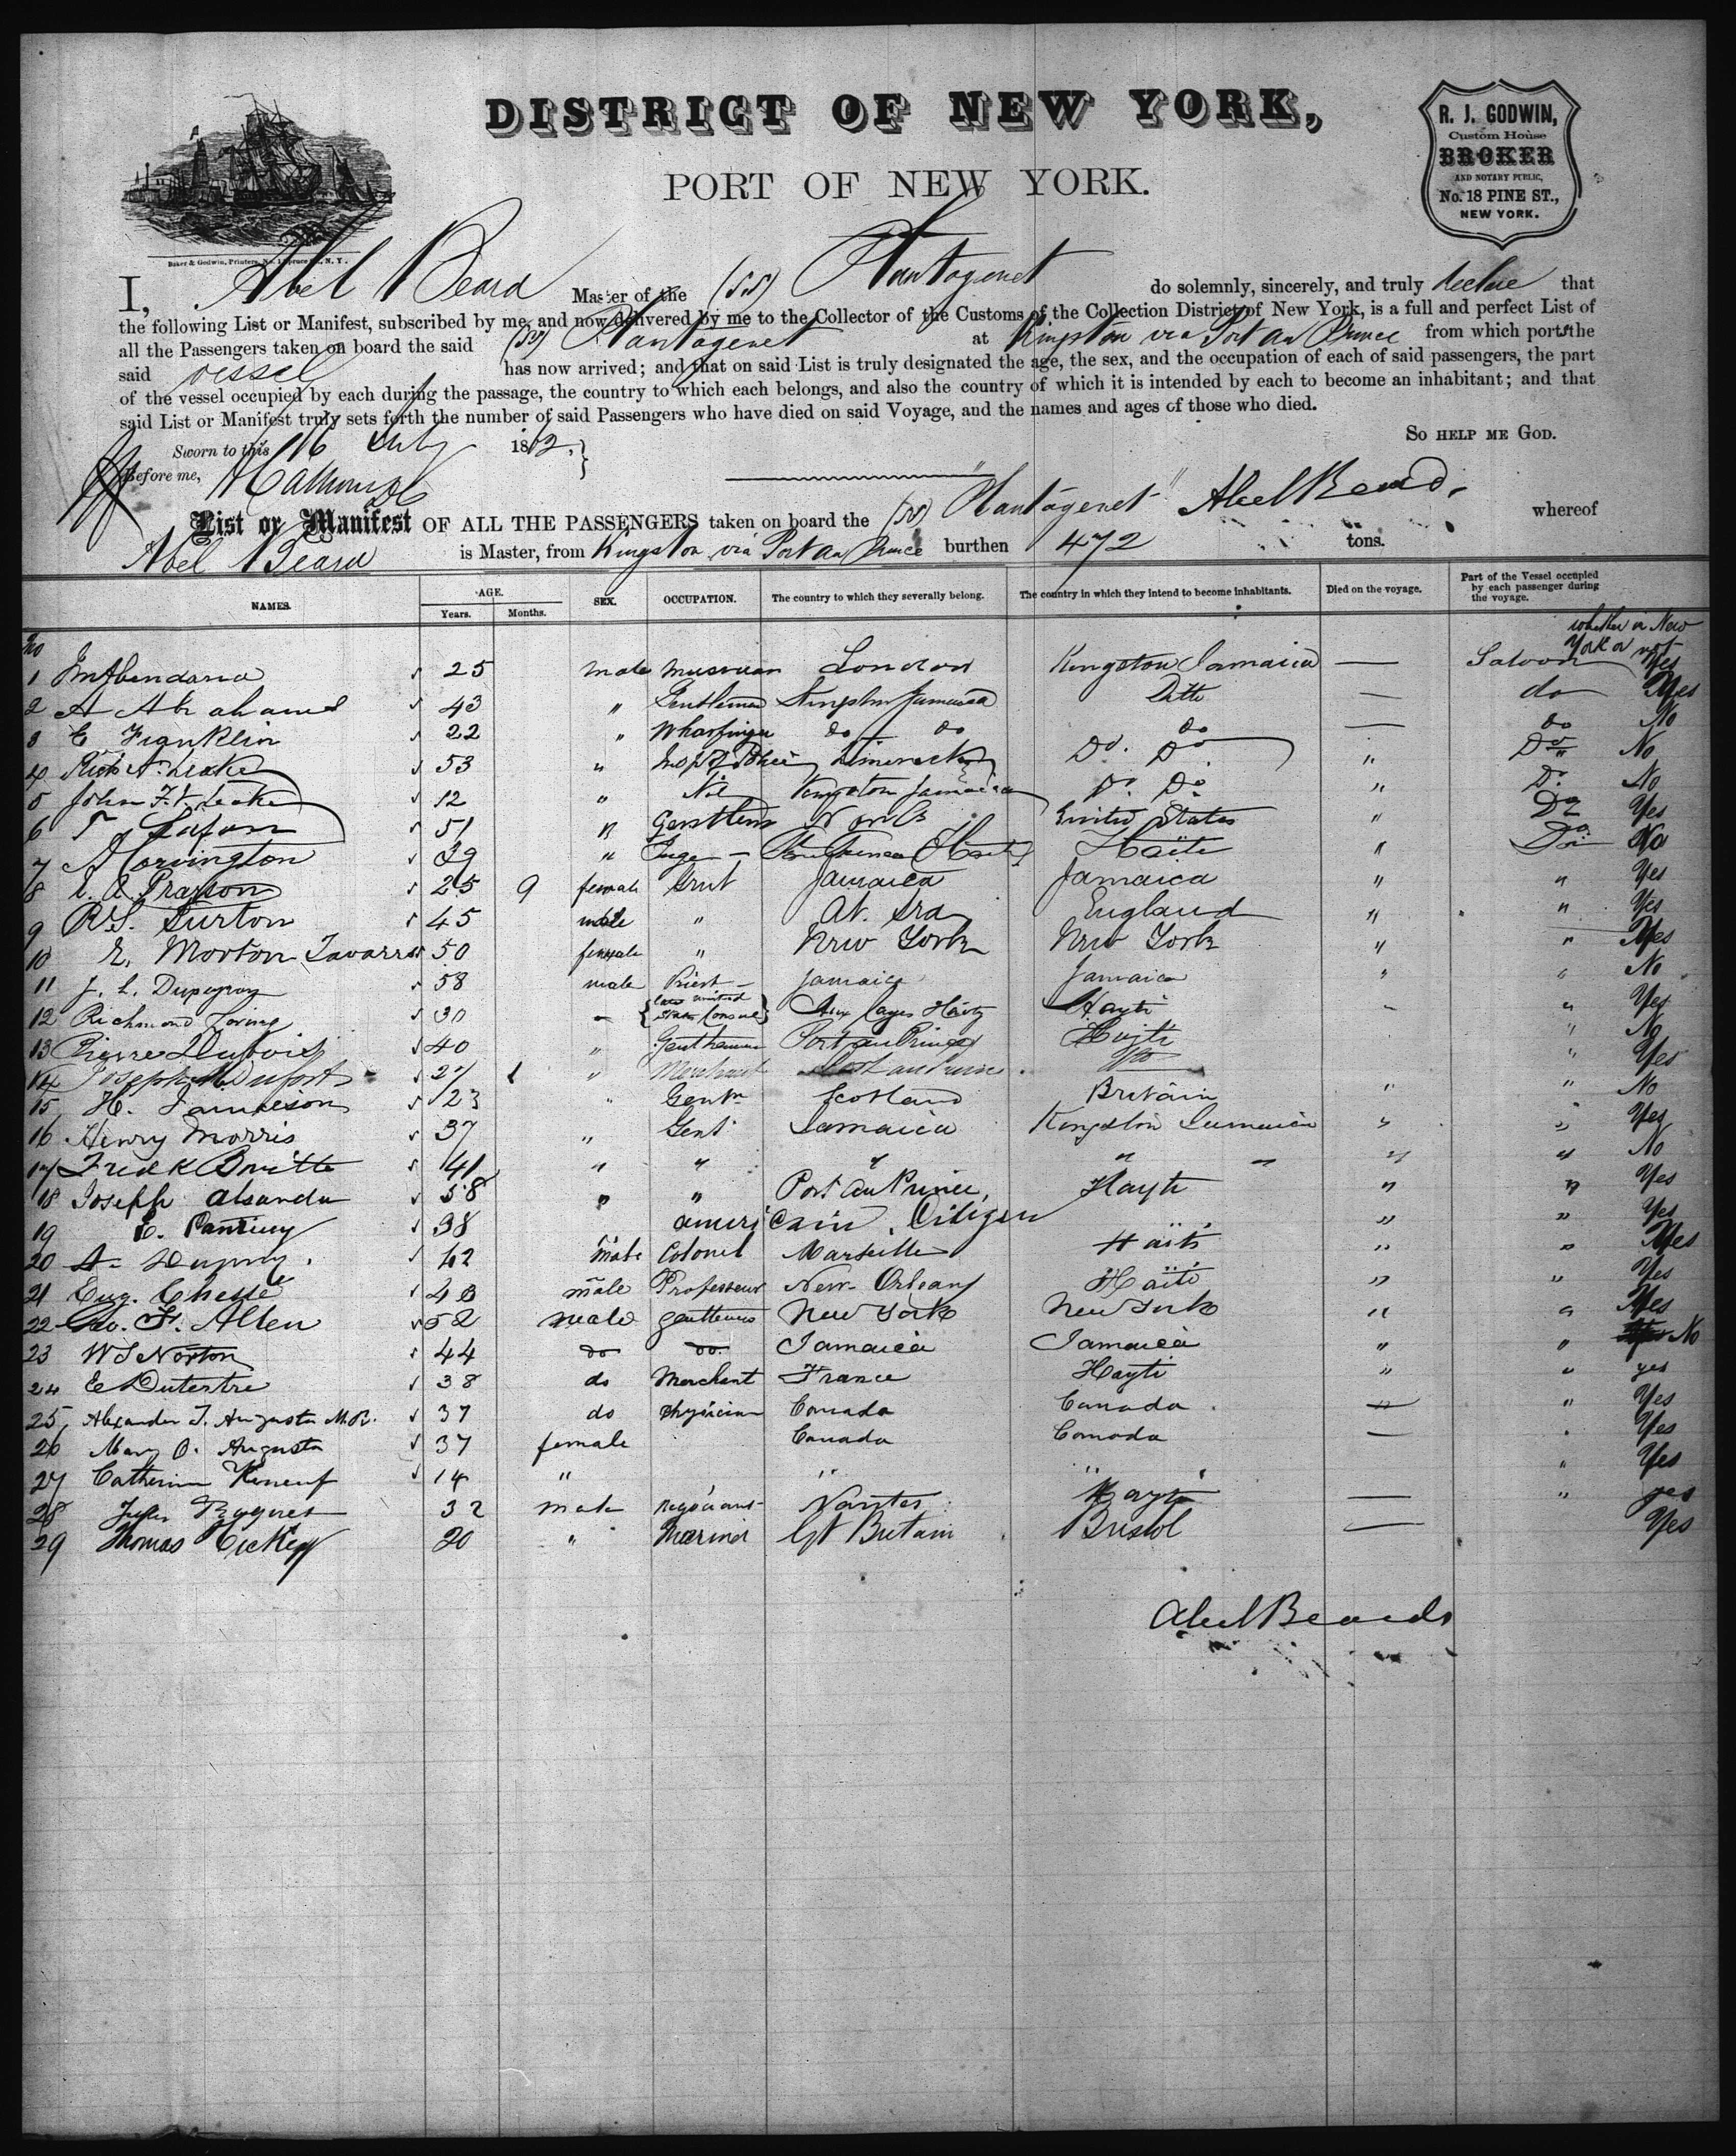 DISTRICT OF NEW YORK,
PORT OF NEW YORK.
R. J. GODWIN,
Custom House
BROKER
AND NOTARY PUBLIC,
No. 18 PINE ST.,
NEW YORK.
Baker & Godwin, Printers, No. 1 Spruce St., N. Y.
I, Abel Beard Master of the (SS) Plantagenet do solemnly, sincerely, and truly declare that
the following List or Manifest, subscribed by me, and now delivered by me to the Collector of the Customs of the Collection District of New York, is a full and perfect List of
all the Passengers taken on board the said (SS) Plantagenet at Kingston via Port au Prince from which port the
said vessel has now arrived; and that on said List is truly designated the age, the sex, and the occupation of each of said passengers, the part
of the vessel occupied by each during the passage, the country to which each belongs, and also the country of which it is intended by each to become an inhabitant; and that
said List or Manifest truly sets forth the number of said Passengers who have died on said Voyage, and the names and ages of those who died.
SO HELP ME GOD.
Sworn to this 16 July 1872.
Before me,
Abel Beard.
List or Manifest OF ALL THE PASSENGERS taken on board the (SS) "Plantagenet" whereof
Abel Beard is Master, from Kingston via Port au Prince burthen 472 tons.
NAMES. AGE. Years. Months. SEX. OCCUPATION. The country to which they severally belong. The country in which they intend to become inhabitants. Died on the voyage. Part of the Vessel occupied by each passenger during the voyage.
No whether in New York or not
1 25 male musician London Kingston Jamaica — Saloon Yes
2 A Abrahams 43 " Gentleman Kingston Jamaica Ditto — do Yes
3 C Franklin 22 " Wharfinger do do do — do No
4 53 " Limerick Do. Do. " Do No
5 12 " Nil Kingston Jamaica Do. Do. " Do. No
6 51 " United States " Do Yes
7 39 " Haïti " Do No
8 25 9 female Jamaica Jamaica " " Yes
9 45 male " England " " Yes
10 E. Morton Tavarres 50 female " New York New York " " Yes
11 J. L. Dupeyron 58 male Priest Jamaica Jamaica " " No
12 Richmond Loring 30 — {late United States Consul} Aux Cayes Hayti Hayti - " Yes
13 Pierre Dubois 40 " Gentleman Port au Prince Hayti " No
14 27 1 " Merchant Port au Prince Do " Yes
15 H. Jamieson 23 " Gentn Scotland Britain " " No
16 Henry Morris 37 " Gent Jamaica Kingston Jamaica " " Yes
17 41 " " " " " " No
18 Joseph 58 " " Port au Prince, Hayti " " Yes
19 38 american Citizen " " Yes
20 male Colonel Marseille Haïti " " Yes
21 Eug. Chesse 43 male Professeur New Orleans Haïti " " Yes
22 Geo. F. Allen 52 male gentleman New York New York " " Yes
23 W S Norton 44 do do. Jamaica Jamaica " " No
24 E Dutertre 38 do Merchant France Hayti " " yes
25 Alexander T. Augusta M.D. 37 do Physician Canada Canada " " Yes
26 Mary O. Augusta 37 female Canada Canada — " Yes
27 Catherine 14 " " " " Yes
28 32 male Negociant Nantes Hayti — " yes
29 Thomas 20 " Mariner Gt Britain Bristol — Yes
Abel Beard